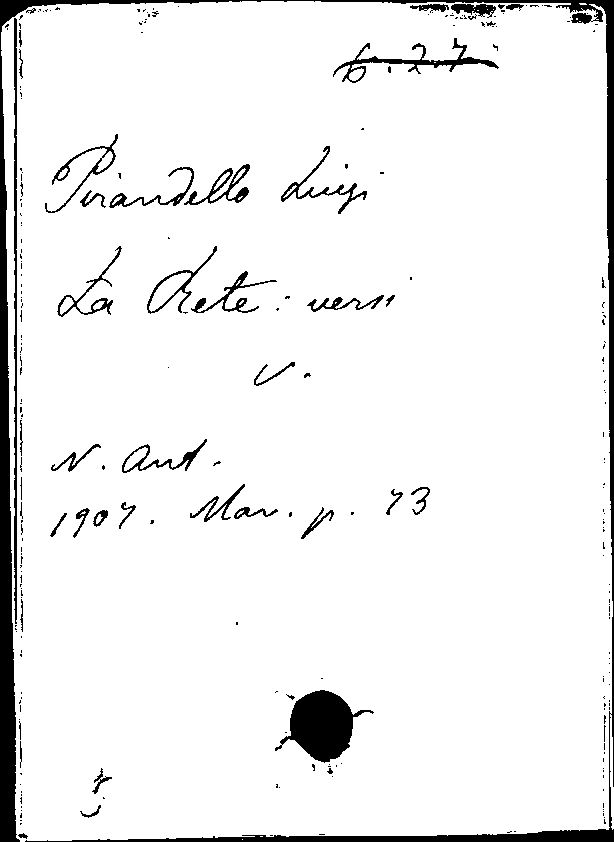 6.2.7
Pirandello Luigi
La Mete: versi
V.
N. Ant.
1907. Mar. p. 73